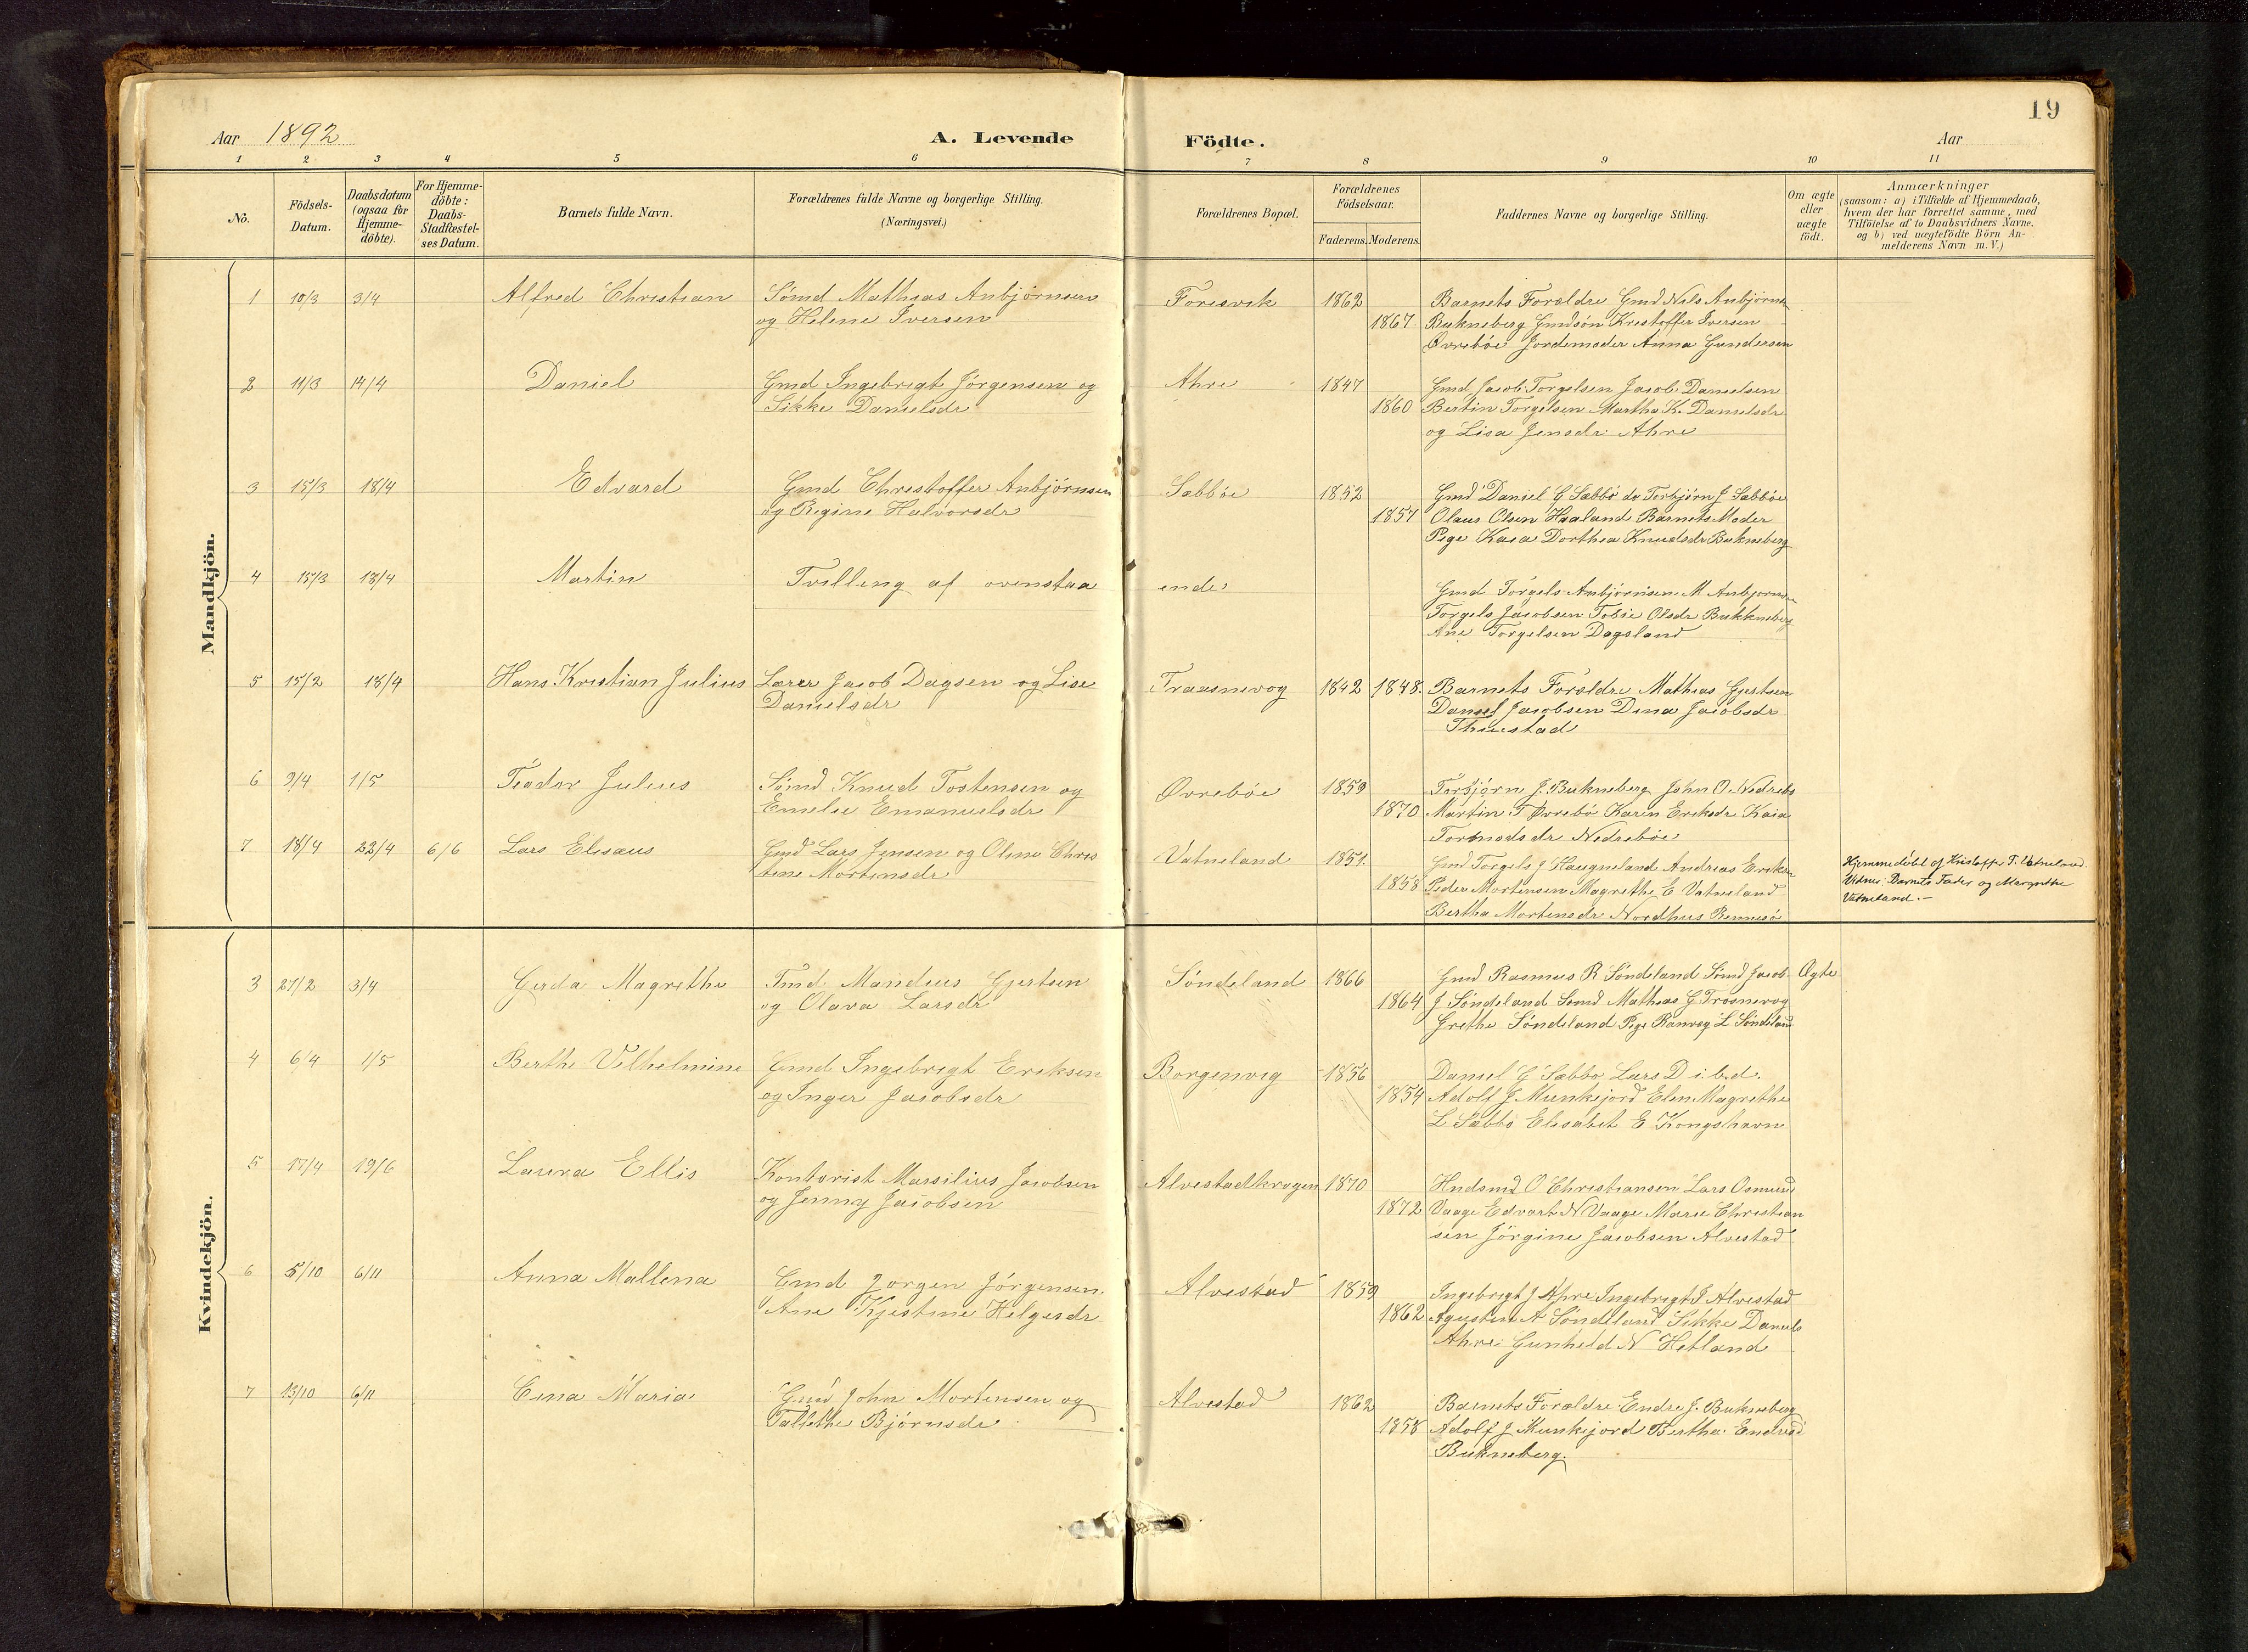 19
Aar 1892
A. Levende Födte.
Aar
1 2 3 4 5 6 7 8 9 10 11
No.
Födsels-Datum.
Daabsdatum (ogsaa for Hjemme-döbte).
For Hjemme-döbte: Daabs-Stadfæstel-ses Datum.
Barnets fulde Navn.
Forældrenes fulde Navne og borgerlige Stilling. (Næringsvei.)
Forældrenes Bopæl.
Forældrenes Födselsaar.
Faderens. Moderens.
Faddernes Navne og borgerlige Stilling.
Om ægte eller uægte födt.
Anmærkninger
(saasom: a) i Tilfælde af Hjemmedaab,
hvem der har forrettet samme, med
Tilföielse af to Daabsvidners Navne,
og b) ved uægtefödte Börn An-
melderens Navn m. V.)
Mandkjön.
1 10/3 3/4 Alfred Christian
Sömd Mathias Anbjörnsen
og Helene Iversen
Foresvik 1862
1867
Barnets Forældre Gmd Nils Anbjörns
Bukneberg Gmdsön Krestoffer Iversen
Övreböe Jordemoder Anna Gundersen
2 11/3 14/4 Daniel
Gmd Ingebrigt Jörgensen og
Sikke Danielsdr
Ahre 1847
1860
Gmd Jacob Torgelsen Jacob Danielsen
Bertin Torgelsen Martha K. Danielsdr
og Lisa Jensdr Ahre
3 15/3 18/4 Edvard
Gmd Christoffer Anbjörnsen
og Regine Halvorsdr
Sabböe 1852
1857
Gmd Daniel G Sabbö do Torbjörn J Sabböe
Olaus Olsen Haaland Barnets Moder
Pige Kaia Dorthea Knudsdr Bukneberg
4 15/3 18/4 Martin
Tvilling af ovenstaa ende
Gmd Torgels Anbjörnsen M Anbjörnsen
Torgels Jacobsen Tobie Olsdr Bukkneberg
Ane Torgelsen Dagsland
5 15/2 18/4 Hans Kristian Julius
Lærer Jacob Dagsen og Lise
Danielsdr
Traasnevog 1842 1848.
Barnets Forældre Mathias Gjertsen
Daniel Jacobsen Dina Jacobsdr
Thuestad
6 9/4 1/5 Teodor Julius
Sömd Knud Tostensen og
Emelie Emanuelsdr
Övreböe 1859
1870
Torbjörn J. Bukneberg John O Nedrebö
Martin T Övrebö Karen Eriksdr Kaia
Tormods dr Nedreböe
7 18/4 22/4 6/6 Lars Elesæus
Gmd Lars Jensen og Oline Chris
tine Mortensdr
Vatneland 1851.
1858
Gmd Torgels J Haugneland Andreas Eriksen
Peder Mortensen Magrethe E Vatneland
Bertha Mortensdr Nordhus Rennesö
Hjemmedöbt af Kristoffer T. Vatneland.
Vidner: Barnets Fader og Margrethe
Vatneland.—
Kvindekjön.
3 27/2 3/4 Gerda Magrethe
Tmd. Mandius Gjertsen
og Olava Larsdr
Söndeland 1866
1864
Gmd Rasmus R Söndeland Sömd Jacob
J Söndeland Sömd Mathias G Trosnevog
Grethe Söndeland Pige Ranveg L Söndeland
Ægte
4 6/4 1/5 Berthe Vilhelmine
Gmd Ingebrigt Eriksen
og Inger Jacobsdr
Borgenvig 1856
1854
Daniel G Sabbö Lars D i.b.d.
Adolf J Munkejord Elen Magrethe
L Sabbö Elisabet E Kongshavn
5 17/4 19/6 Laura Ellis
Kontorist Marsilius Jacobsen
og Jenny Jacobsen
Alvestadkrogen 1870
1872
Husmd O Christiansen Lars Osmund
Vaage Edvart N Vaage Marie Christian
sen Jörgine Jacobsen Alvestad
6 5/10 6/11 Anna Mallena
Gmd Jorgen Jörgensen.
Ane Kjestine Helgesdr
Alvestad 1859
1862
Ingebrigt J Ahre Ingebrigt J Alvestad
Agustin A Söndeland Sikke Daniels
Ahre Gunheld N Hetland
7 13/10 6/11 Elna Maria
Gmd John Mortensen og
Tallethe Björnsdr
Alvestad 1862
1858
Barnets Forældre Endre J. Bukneberg
Adolf J Munkejord Bertha Endresd
Bukneberg.